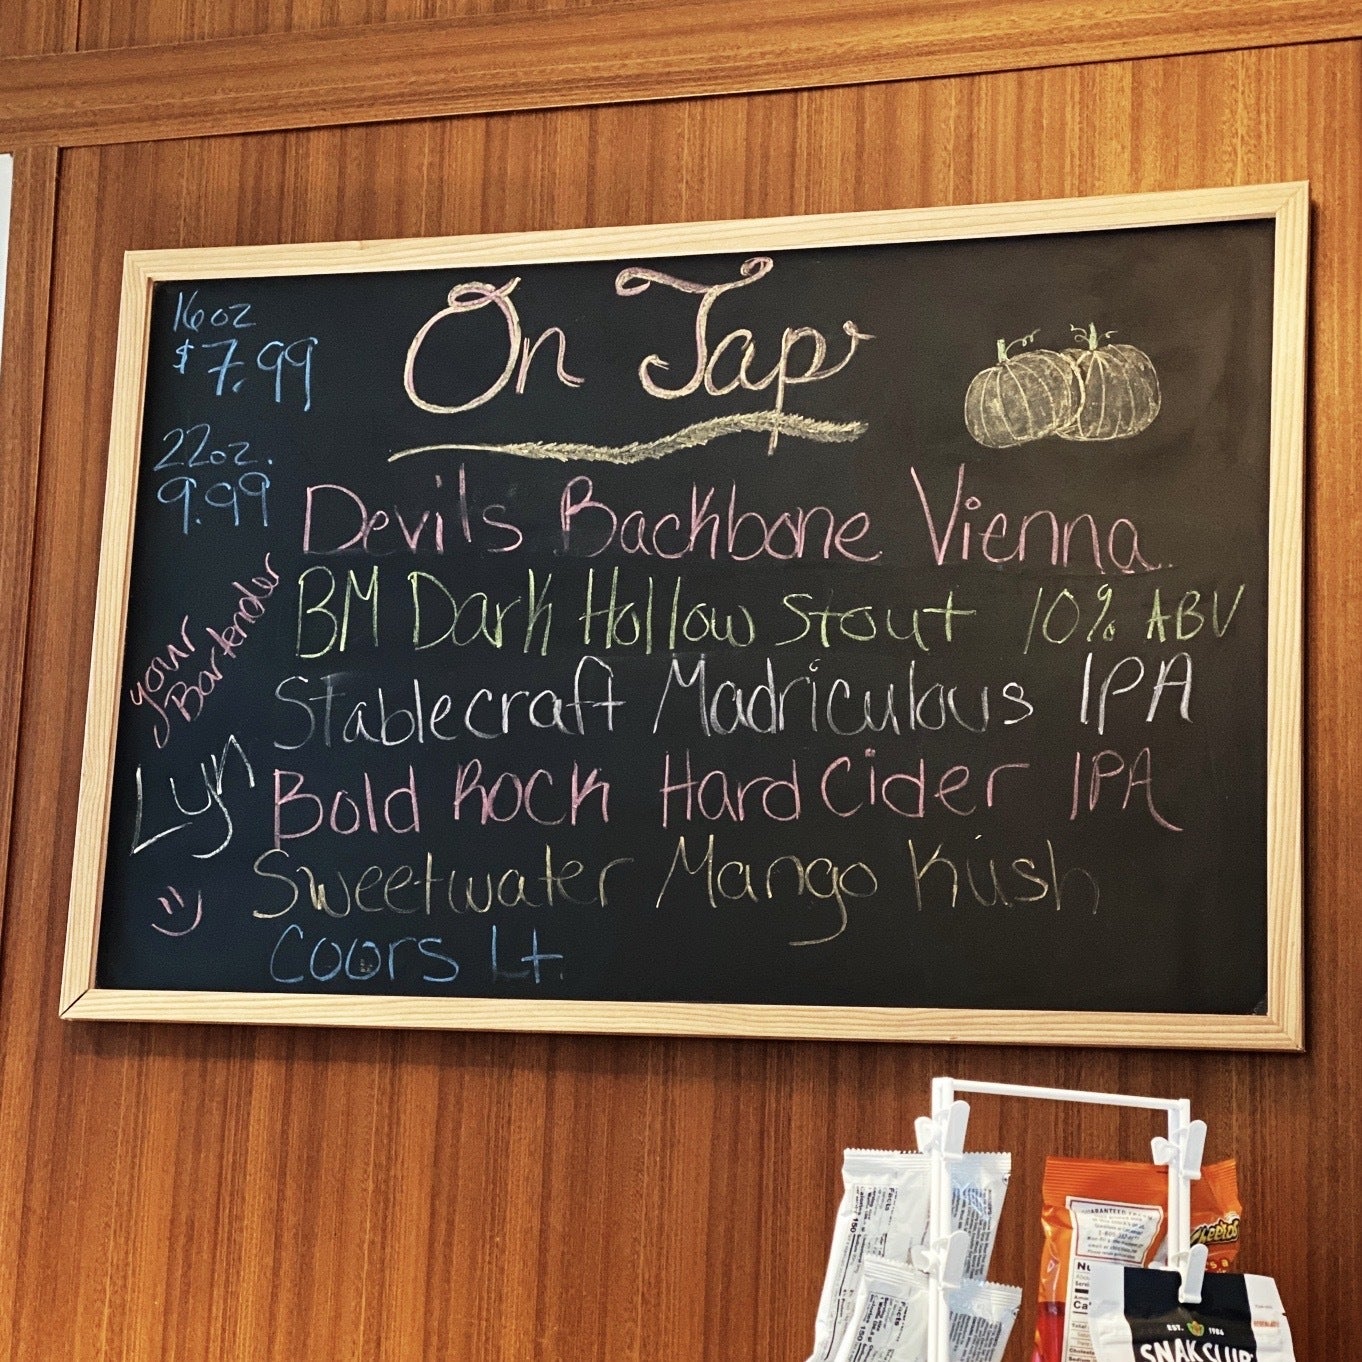 On Tap
16oz
$7.99
22oz.
9.99
Devils Backbone Vienna
BM Dark Hollow Stout 10% ABV
Stablecraft Madriculous IPA
Bold Rock Hard Cider IPA
Sweetwater Mango Kush
Coors Lt.
your
Bartender
Lyn
Facts
150
150
GUARANTEED FRESH
Cheetos
EST. 1986
SNAK CLUB